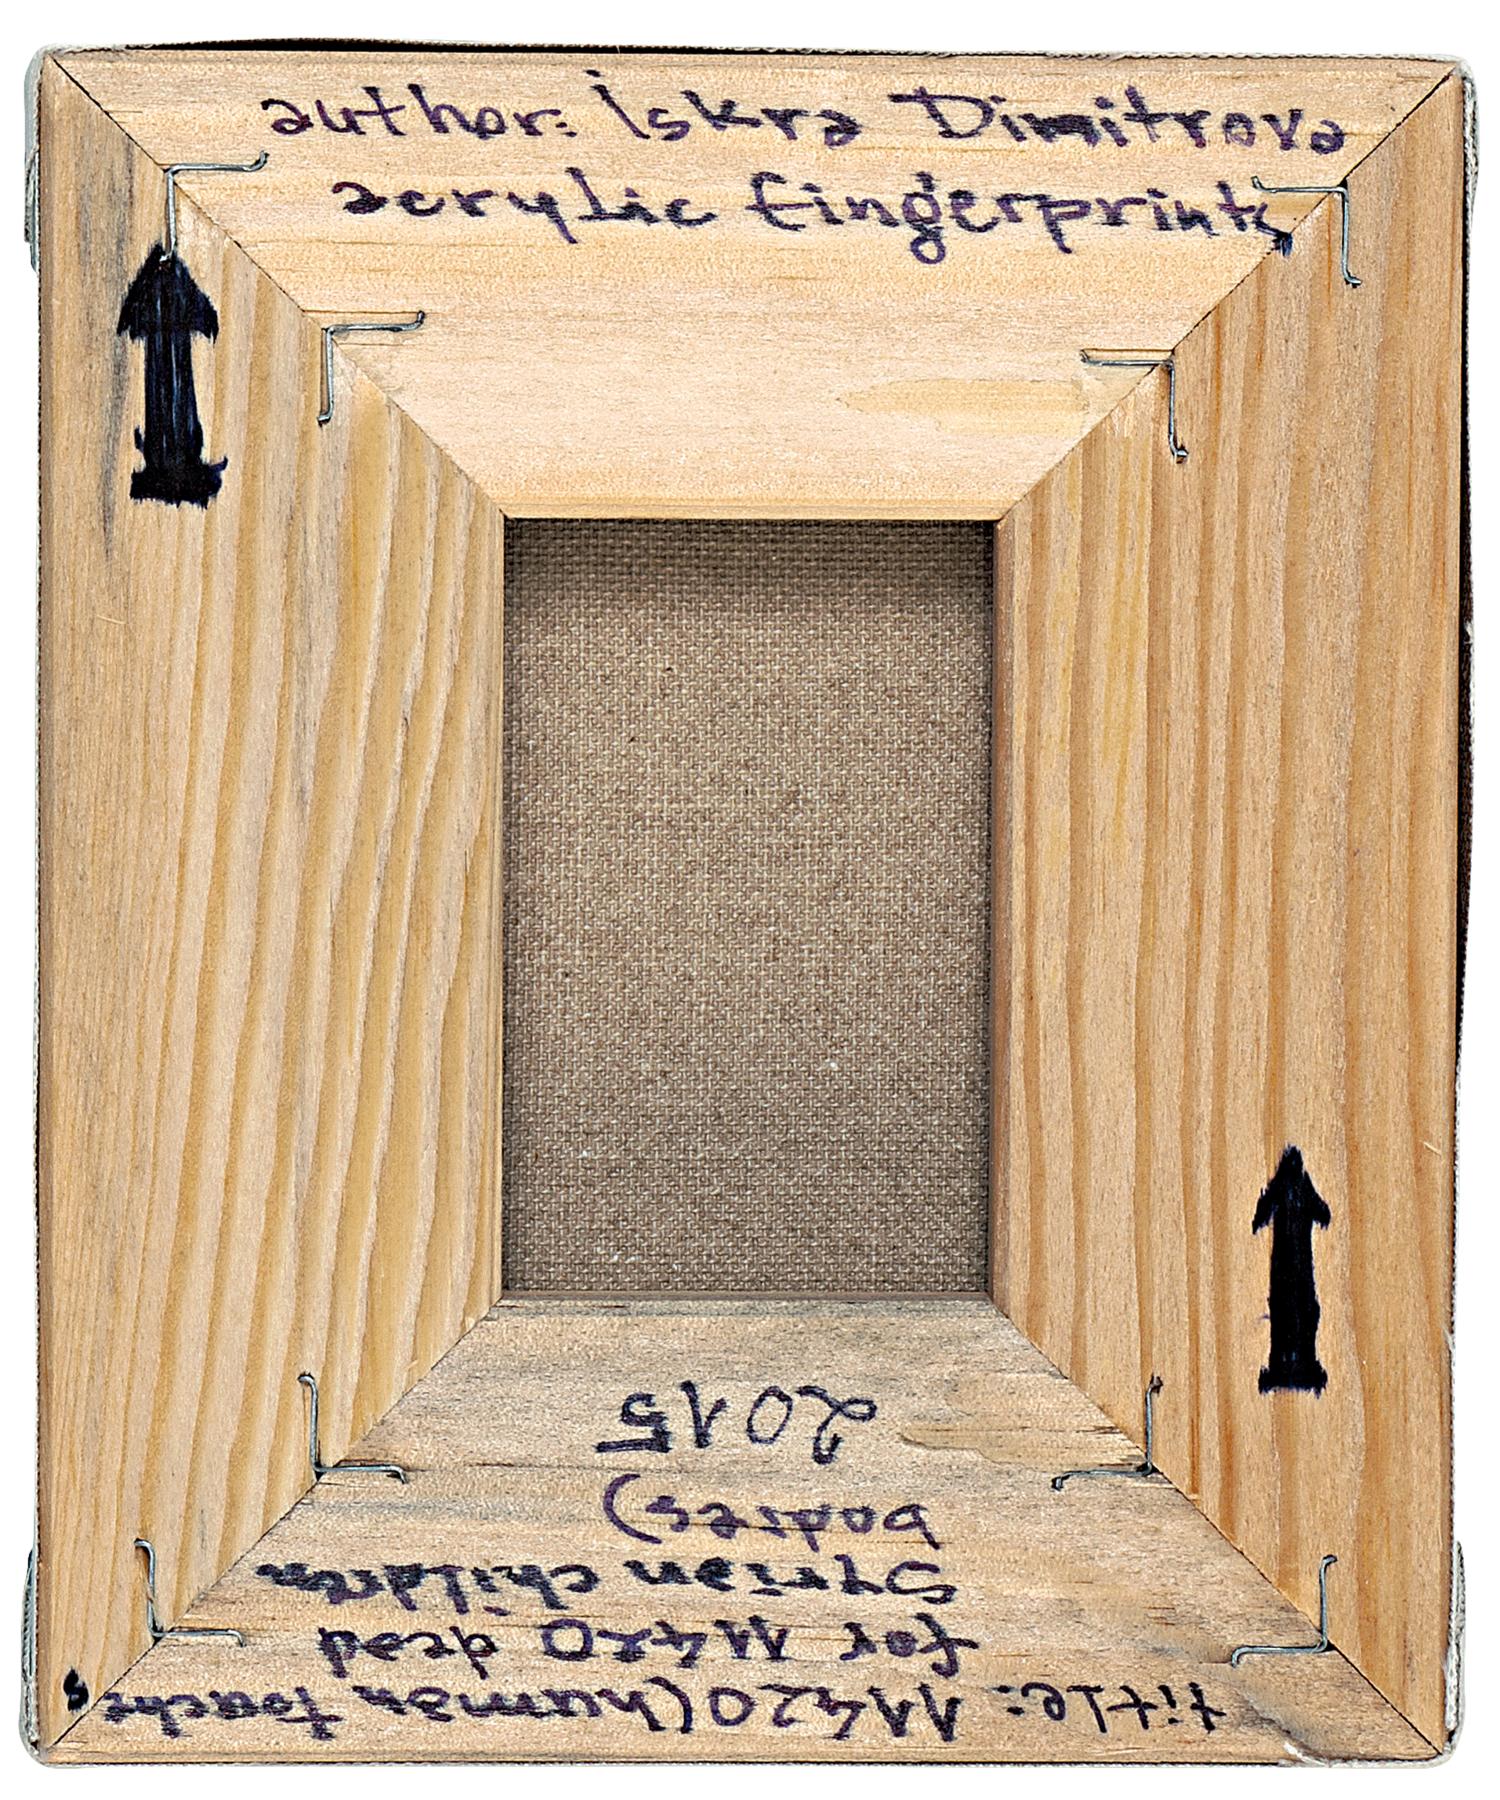 author: Iskra Dimitrova
acrylic fingerprints
title: 11420 (human touches
for 11420 dead
Syrian children
bodies)
2015